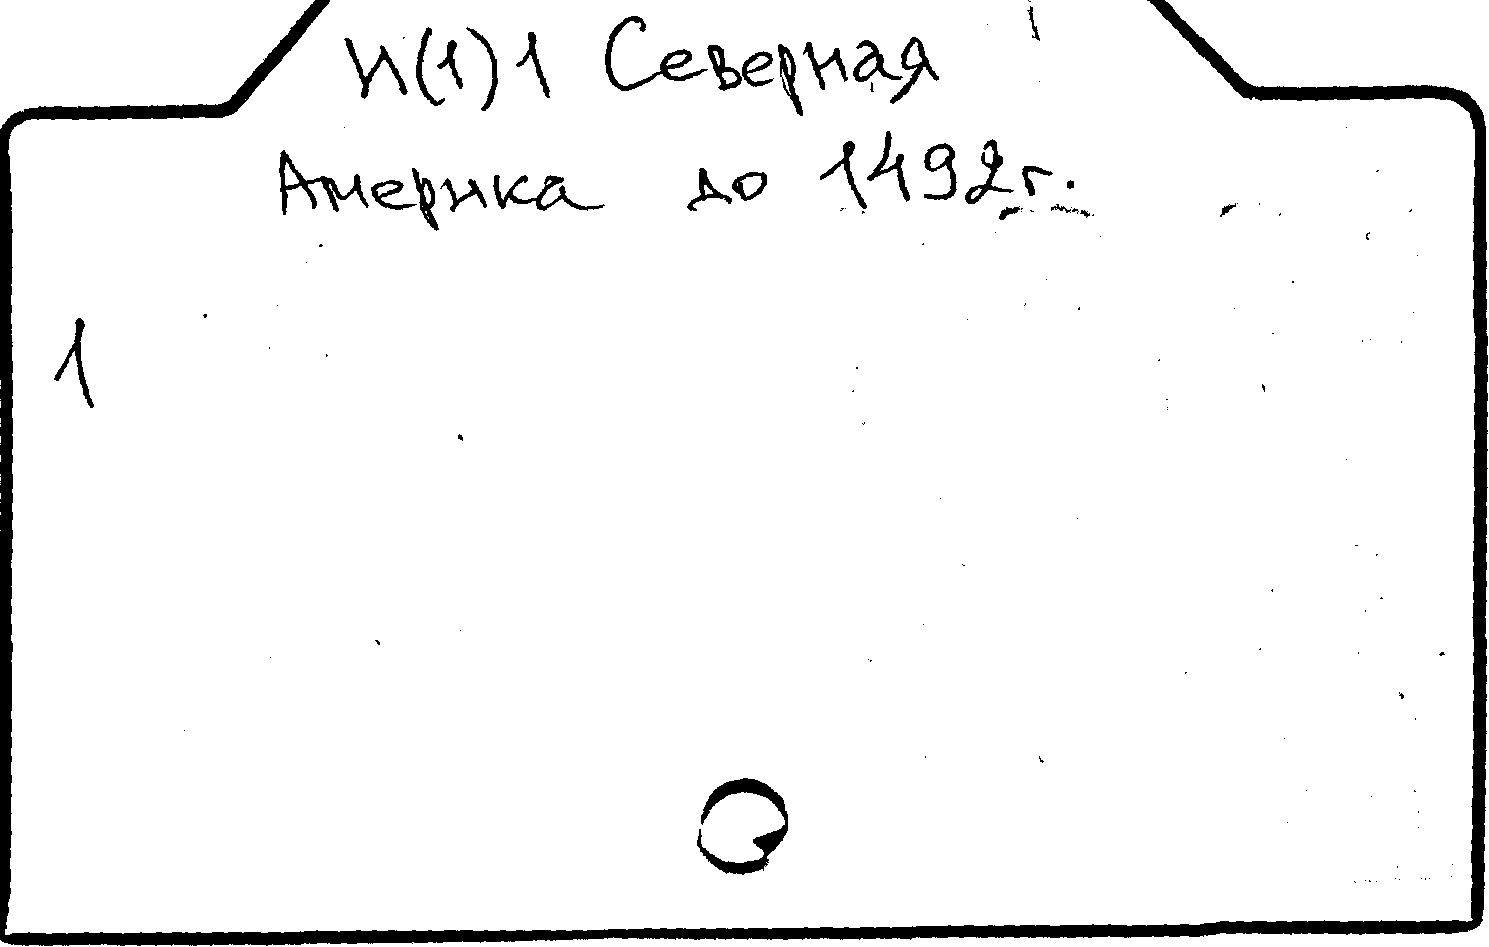 И(1)1 Северная
Америка до 1492г.
1